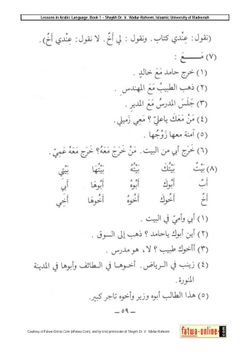 Lessons in Arabic Language, Book 1 - Shaykh Dr. V. 'Abdur-Raheem, Islamic University of Madeenah
(نقول: عِنْدي كتاب. ونقول : لي أَخٌ. لا نقول: عِنْدي أَخٌ).
(٧) مَـــعَ :
(١) خرج حامد مَعَ خالدٍ .
(٢) ذهب الطبيبُ مَعَ المهندسِ .
(٣) جَلَسَ المدرِّسُ مَعَ المديرِ .
(٤) مَنْ مَعَكَ ياعليّ؟ مَعِي زَمِيلي.
(٥) آمنة معها زَوْجُها .
(٦) خرَجَ أبي من البيت. مَنْ خَرَجَ مَعَهُ؟ خَرَجَ مَعَهُ عَمِّي.
(٨) بَيْتٌ بَيْتُكَ بَيْتُهُ بَيْتُهَا بَيْتِي
أَبٌ أَبُوكَ أَبُوهُ أَبُوهَا أَبي
أَخٌ أَخُوكَ أَخُوهُ أَخُوهَا أَخِي
(١) أبي وأمّي في البيت .
(٢) أين أبوك ياحامد؟ ذهب إلى السوق .
(٣) أأخوك طبيب؟ لا، هو مدرس .
(٤) زينب في الرياض. أخــوها في الطائف وأبوها في المدينة
المنورة.
(٥) هذا الطالب أبوه وزير وأخوه تاجر كبير.
— ٥٩ —
fatwa-online